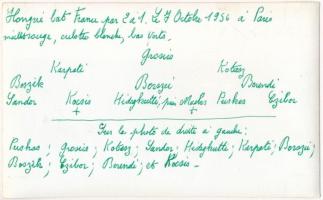 Hongrie bat France par 2 à 1. Le 7 Octobre 1956 à Paris
maillot rouge, culotte blanche, bas verts.
Grosics
Karpati Kotasz
Boszik Borszei Berendi
Sandor Kocsis Hidegkutti, puis Machos Puskas Czibor
+ +
Sur la photo de droite à gauche:
Puskas; grosics; Kotasz; Sandor; Hidegkutti; Karpati; Borszei;
Boszik; Czibor; Berendi; et Kocsis -